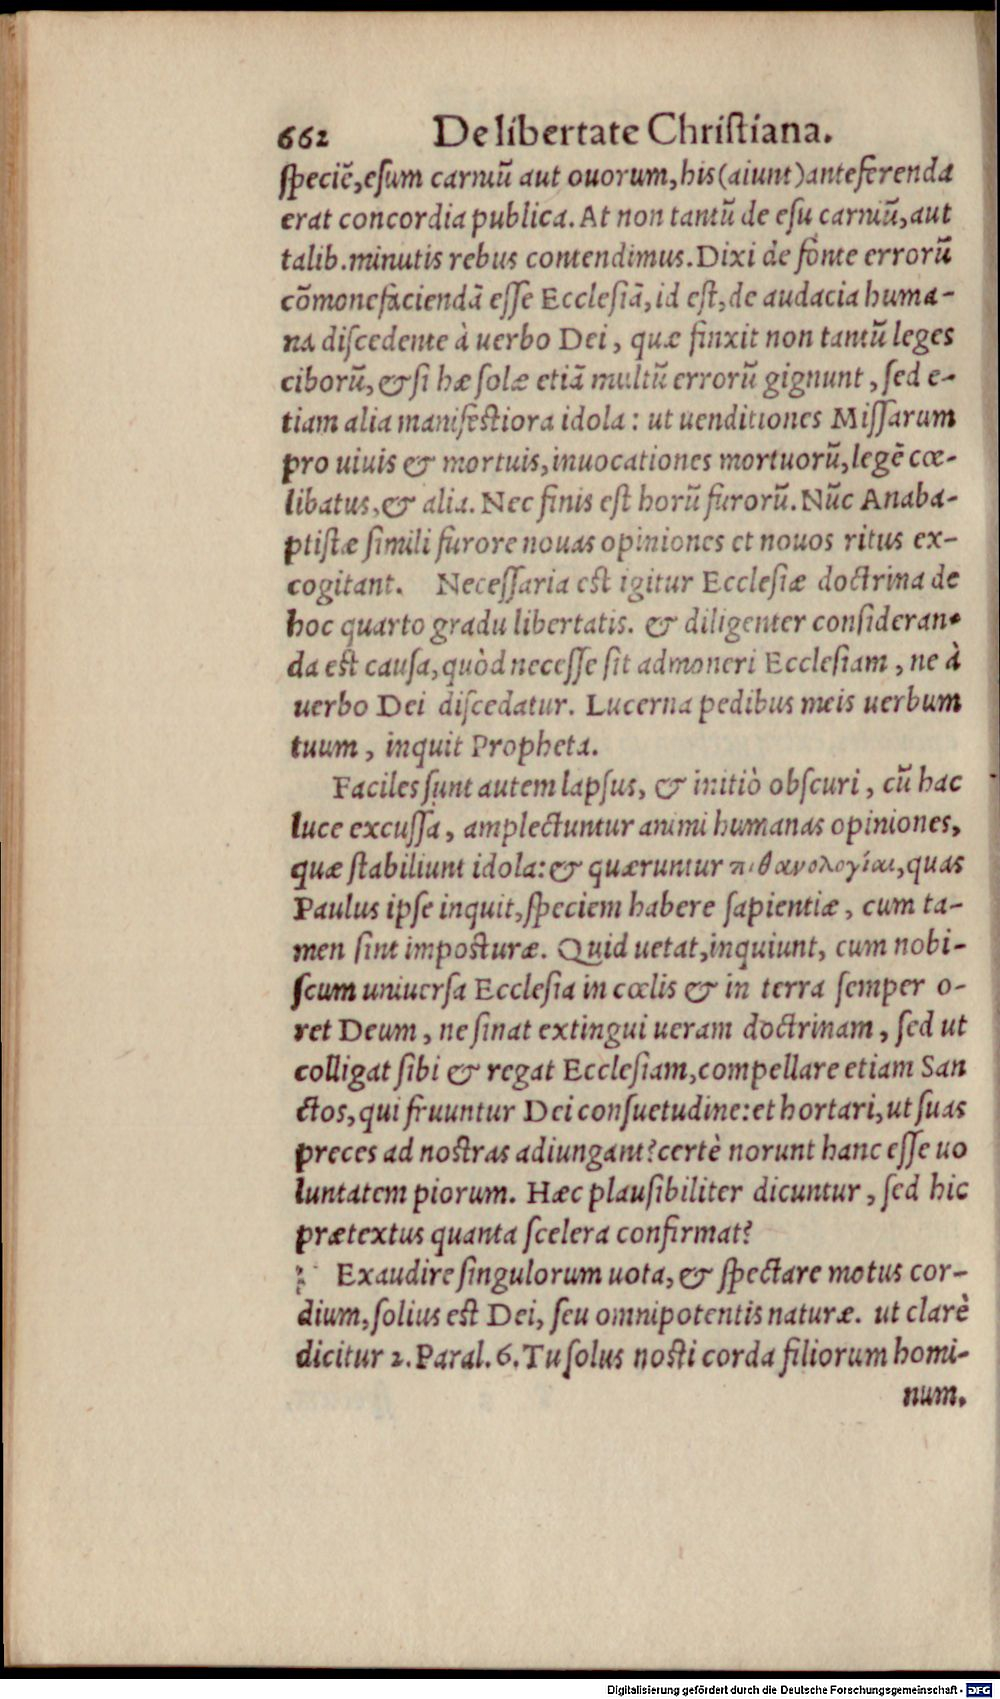 662 De libertate Christiana.
speciẽ, esum carniũ aut ouorum, his (aiunt) anteferenda
erat concordia publica. At non tantũ de esu carniũ, aut
talib. minutis rebus contendimus. Dixi de fonte errorũ
cõmonefaciendã esse Ecclesiã, id est, de audacia huma-
na discedente à uerbo Dei, quæ finxit non tantũ leges
ciborũ, & si hæ solæ etiã multũ errorũ gignunt, sed e-
tiam alia manifestiora idola: ut uenditiones Missarum
pro uiuis & mortuis, inuocationes mortuorũ, legẽ cœ-
libatus, & alia. Nec finis est horũ furorũ. Nũc Anaba-
ptistæ simili furore nouas opiniones et nouos ritus ex-
cogitant. Necessaria est igitur Ecclesiæ doctrina de
hoc quarto gradu libertatis. & diligenter consideran-
da est causa, quòd necesse sit admoneri Ecclesiam, ne à
uerbo Dei discedatur. Lucerna pedibus meis uerbum
tuum, inquit Propheta.
Faciles sunt autem lapsus, & initiò obscuri, cũ hac
luce excussa, amplectuntur animi humanas opiniones,
quæ stabiliunt idola: & quæruntur πιθανολογίαι, quas
Paulus ipse inquit, speciem habere sapientiæ, cum ta-
men sint imposturæ. Quid uetat, inquiunt, cum nobi-
scum uniuersa Ecclesia in cœlis & in terra semper o-
ret Deum, ne sinat extingui ueram doctrinam, sed ut
colligat sibi & regat Ecclesiam, compellare etiam San
ctos, qui fruuntur Dei consuetudine: et hortari, ut suas
preces ad nostras adiungant? certè norunt hanc esse uo
luntatem piorum. Hæc plausibiliter dicuntur, sed hic
prætextus quanta scelera confirmat?
Exaudire singulorum uota, & spectare motus cor-
dium, solius est Dei, seu omnipotentis naturæ. ut clarè
dicitur 2. Paral. 6. Tu solus nosti corda filiorum homi-
num.
Digitalisierung gefördert durch die Deutsche Forschungsgemeinschaft - DFG